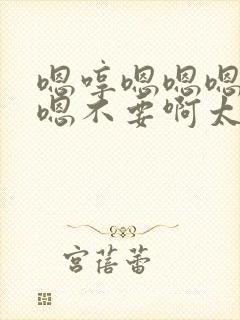 嗯哼嗯嗯嗯
嗯不要啊太
宫蓓蕾